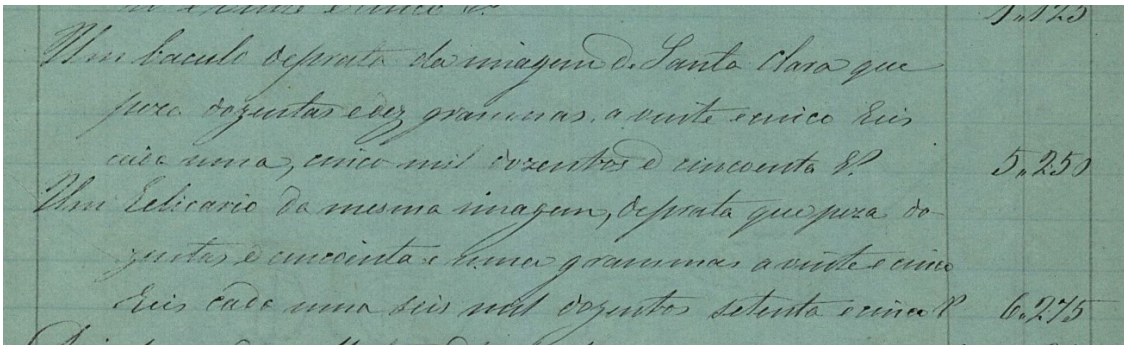 e cinco rs. 1,,125
Um baculo de prata da imagem de Santa Clara que
peza dozentas e dez grammas, a vinte e cinco Reis
cada uma, cinco mil dozentos e cincoenta rs. 5,,250
Um Relicario da mesma imagem, de prata que peza do-
zentas e cincoenta e uma grammas a vinte e cinco
Reis cada uma seis mil dozentos setenta e cinco rs 6,,275